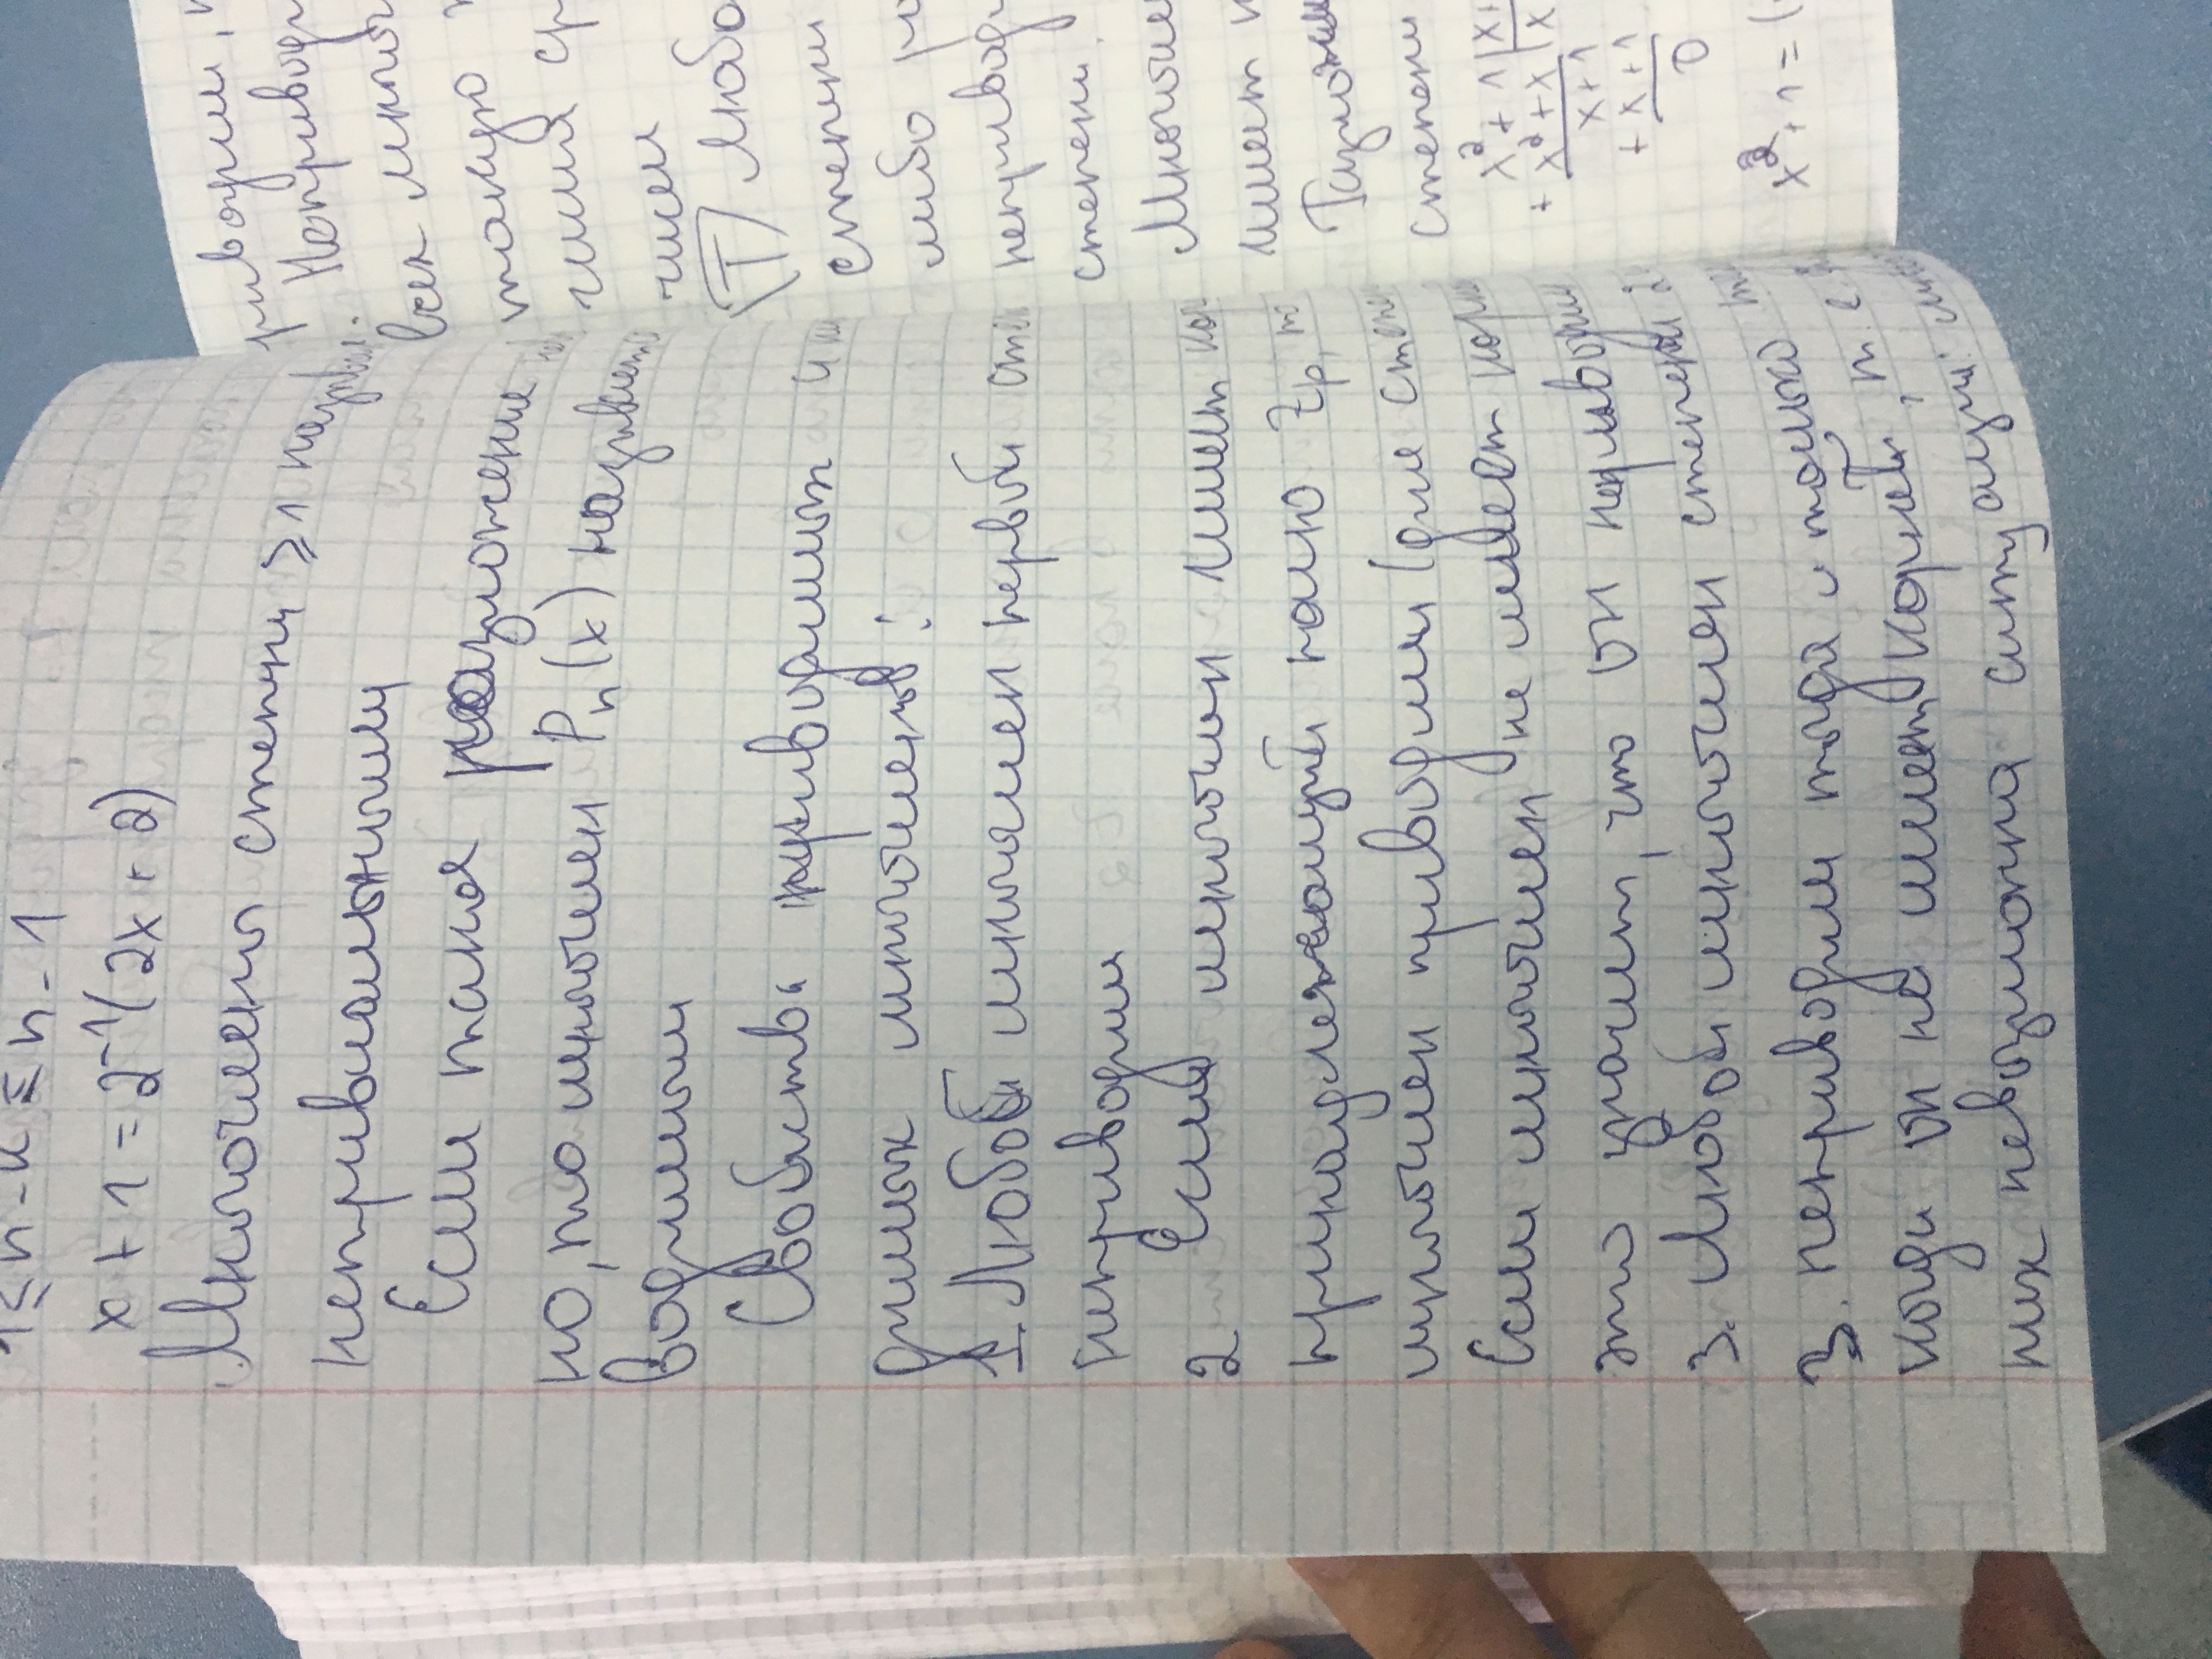 1 ≤ n - k ≤ n - 1
x + 1 = 2⁻¹(2x + 2)
Многочлены степени ≥ 1 назыв.
нетривиальными
Если такое разложение
но, то многочлен Pₙ(x) называет
водимым
Свойства приводимых и
димых многочленов:
1. Любой многочлен первой степ
неприводим
2 Если многочлен имеет кор
принадлежащий полю Zp, то
многочлен приводим (для степен
Если многочлен не имеет корн
это значит, что он неприводим
3. Любой многочлен степени 2
3. неприводим тогда и только
когда он не имеет корней, т.е.
них невозможна ситуация:
риводим,
Неприводи
всех много
такую
числа
чисел
Т Любо
степени
либо ра
неприводи
степени.
Многочле
имеет
Разложи
степени
x² + 1 | x +
+ x² + x | x
x + 1
+ x + 1
0
x² + 1 = (